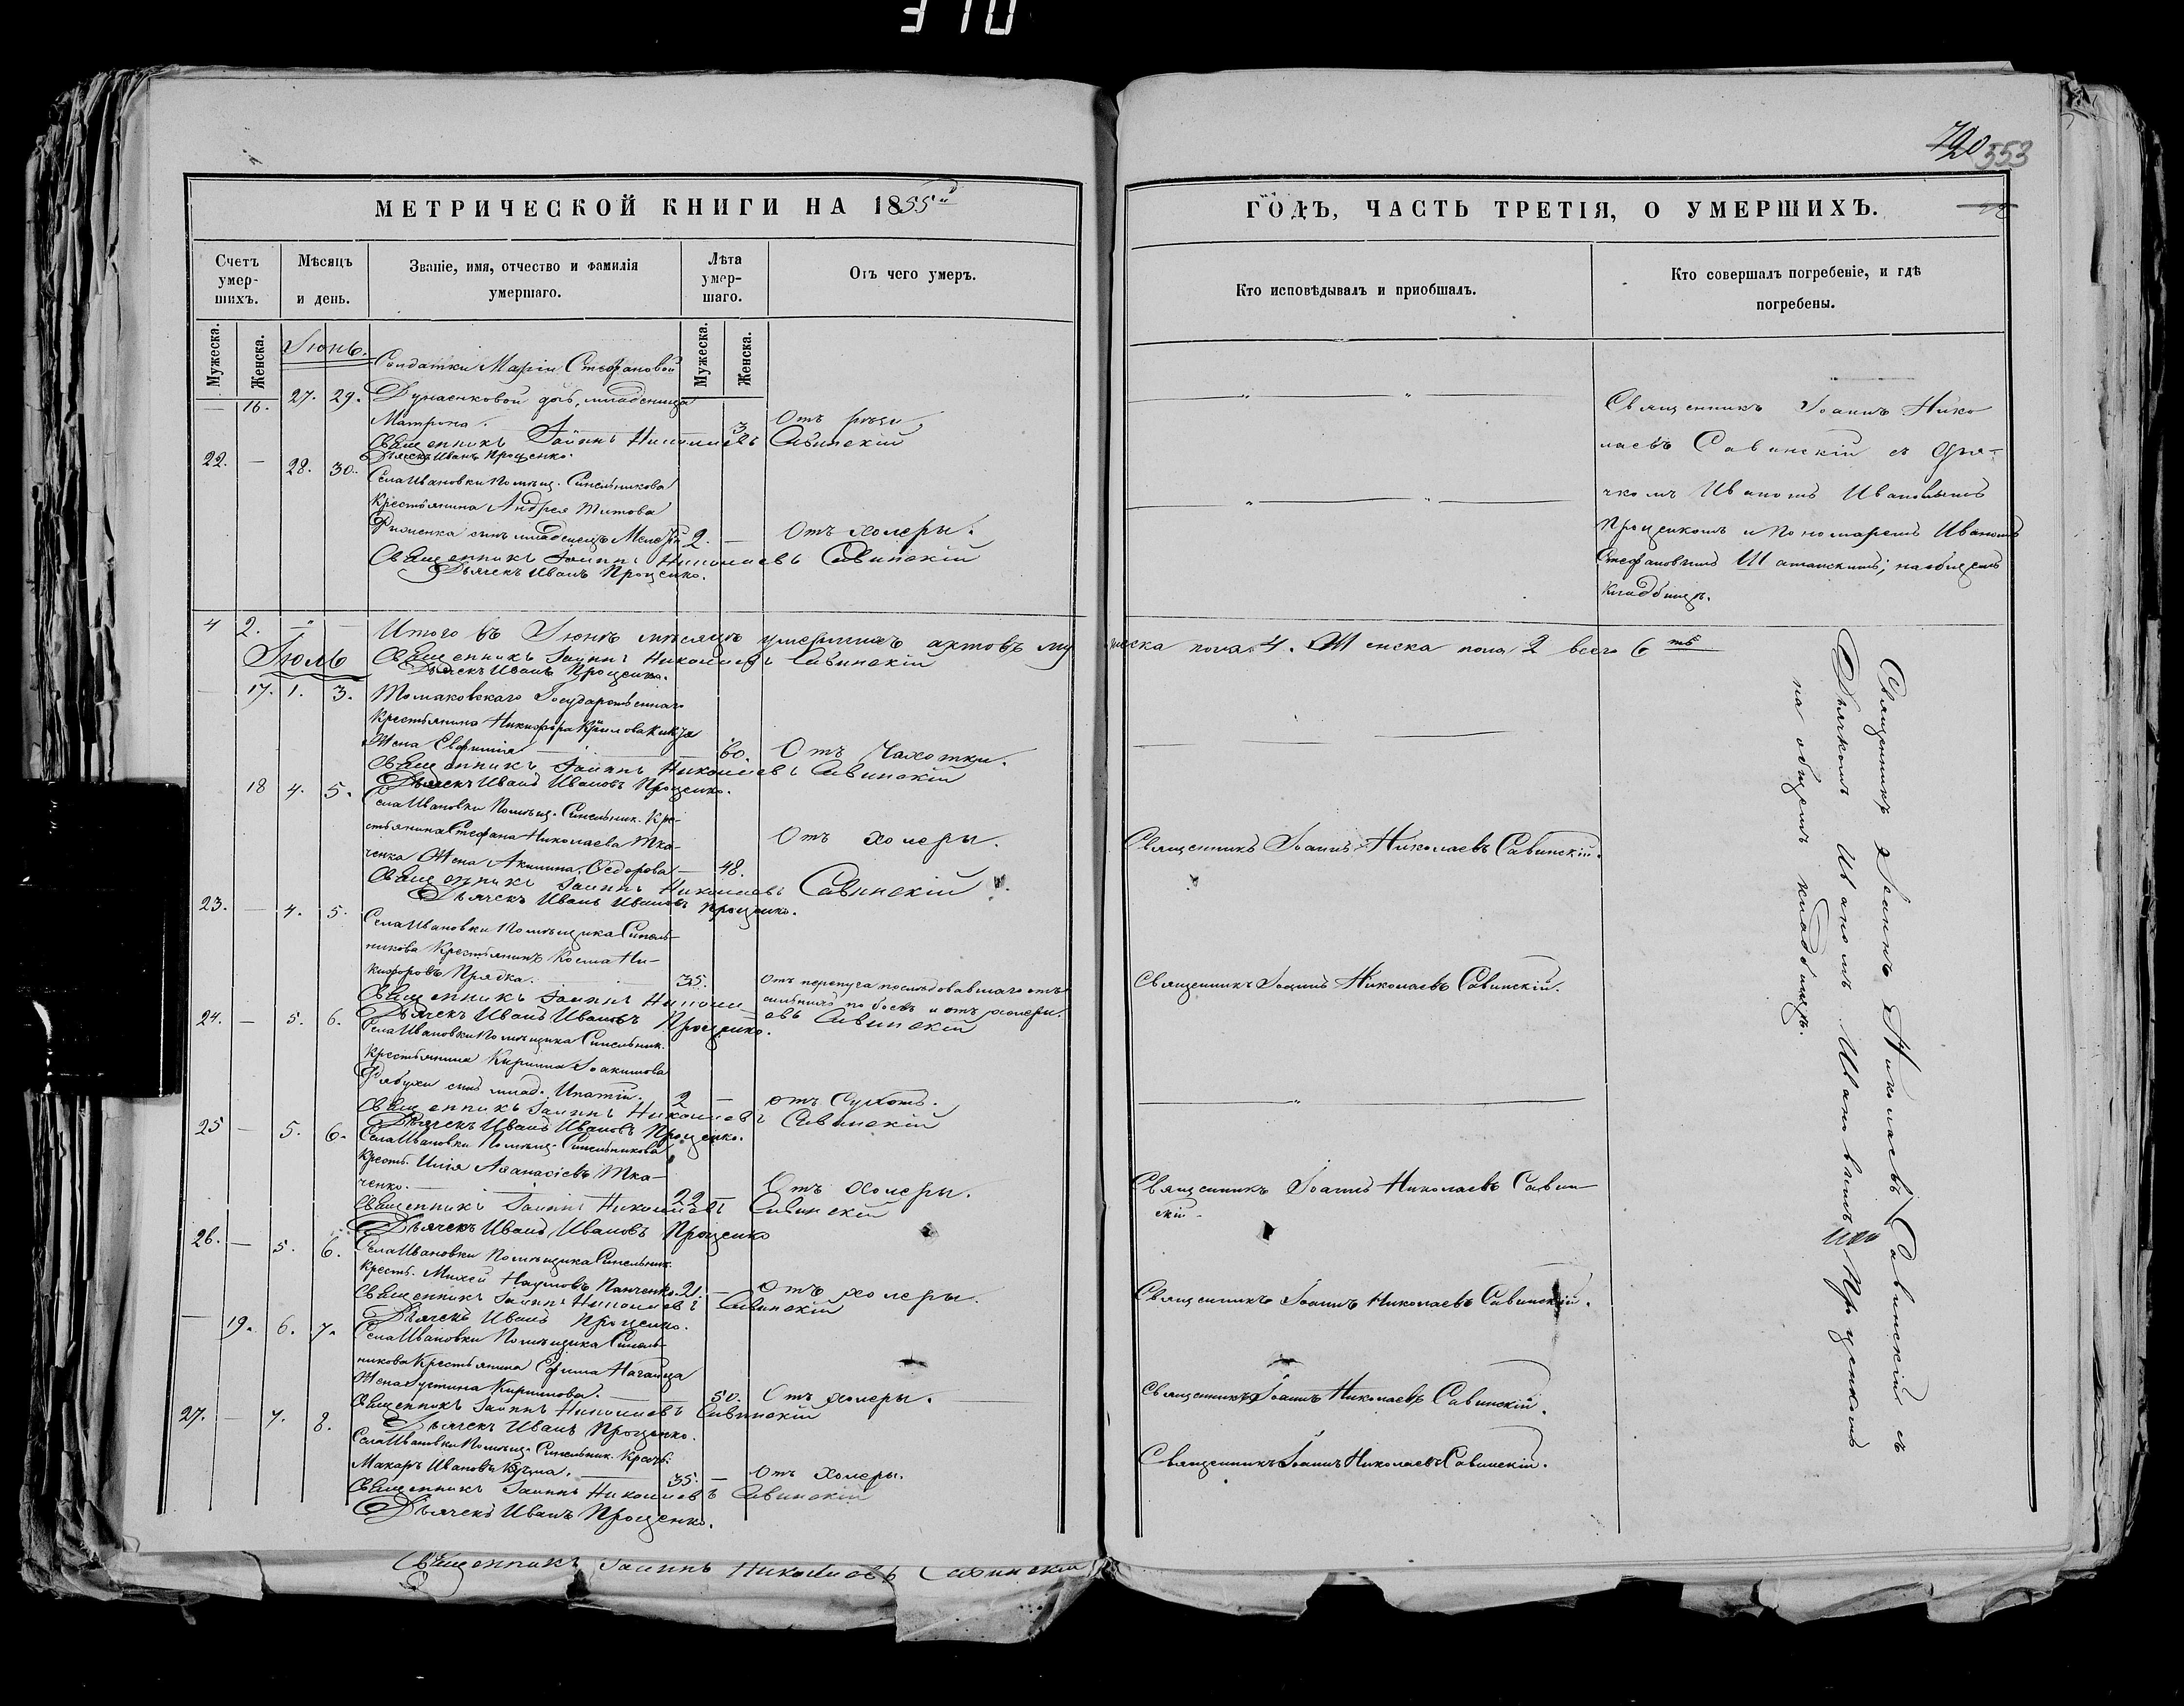 310
720 553
МЕТРИЧЕСКОЙ КНИГИ НА 1855й
ГОДЪ, ЧАСТЬ ТРЕТІЯ, О УМЕРШИХЪ.
Счетъ умер-шихъ.
Мужеска.
Женска.
Мѣсяцъ и день.
Званіе, имя, отчество и фамилія умершаго.
Лѣта умер-шаго.
Мужеска.
Женска.
Отъ чего умеръ.
Кто исповѣдывалъ и пріобщалъ.
Кто совершалъ погребеніе, и гдѣ погребены.
Іюнь.
Солдатки Маріи Стефановой
— 16. 27. 29. Дунаенковой дочь, младеница
Матрона. 3 Отъ
Священникъ Іоаннъ Николаевъ Савинскій
Дьячекъ Иванъ Проценко.
22. — 28. 30. Села Ивановки Помѣщ. Синельникова
Крестьянина Андрея Титова
сынъ младенецъ 2. — Отъ холеры.
Священникъ Іоаннъ Николаевъ Савинскій
Дьячекъ Иванъ Проценко.
Священникъ Іоаннъ Нико
лаевъ Савинскій съ Дья-
чкомъ Иваномъ Ивановымъ
Проценкомъ и Пономаремъ Иваномъ
Стефановымъ Шатанскимъ; на общемъ
кладбищѣ.
4 2. Итого въ Іюнѣ мѣсяцѣ умершихъ актовъ мужеска пола 4. Женска пола 2 всего 6ть
Іюль Священникъ Іоаннъ Николаевъ Савинскій
Дьячекъ Иванъ Проценко.
— 17. 1. 3. Томаковскаго Государственнаго
Крестьянина Никифора
Жена Евфимія — 60. Отъ Чахотки.
Священникъ Іоаннъ Николаевъ Савинскій
Дьячекъ Иванъ Ивановъ Проценко.
18 4. 5. Села Ивановки Помѣщ. Синельник. Кре-
стьянина Стефана Николаева Тка-
ченка Жена Акилина Ѳедорова — 48. Отъ холеры.
Священникъ Іоаннъ Николаевъ Савинскій.
Священникъ Іоаннъ Николаевъ Савинскій
Дьячекъ Иванъ Ивановъ Проценко.
23. — 4. 5. Села Ивановки Помѣщика Синель-
никова Крестьянинъ Косма Ни-
кифоровъ Прядка. 35. Отъ перепуга послѣдовавшаго отъ
сильныхъ побоевъ и отъ холеры.
Священникъ Іоаннъ Николаевъ Савинскій.
Священникъ Іоаннъ Николаевъ Савинскій
Дьячекъ Иванъ Ивановъ Проценко.
24. — 5. 6. Села Ивановки Помѣщика Синельник.
Крестьянина Кирилла Іоакимова
Рябухи сынъ млад. Ипатій. 2 — отъ Сухотъ.
Священникъ Іоаннъ Николаевъ Савинскій
Дьячекъ Иванъ Ивановъ Проценко.
25 — 5. 6. Села Ивановки Помѣщ. Синельникова
Крестьъ. Илія Аѳанасіевъ Тка-
ченко. 22 — Отъ Холеры.
Священникъ Іоаннъ Николаевъ Савин
скій.
Священникъ Іоаннъ Николаевъ Савинскій
Дьячекъ Иванъ Ивановъ Проценко
26. — 5. 6. Села Ивановки Помѣщика Синельник.
Кресть. Михей Наумовъ Панченко. 21. — Отъ холеры.
Священникъ Іоаннъ Николаевъ Савинскій.
Священникъ Іоаннъ Николаевъ Савинскій
Дьячекъ Иванъ Проценко.
— 19. 6. 7. Села Ивановки Помѣщика Синель-
никова Крестьянина Ефима Нагайца
Жена Устина Кириллова. — 50. Отъ холеры.
Священникъ Іоаннъ Николаевъ Савинскій.
Священникъ Іоаннъ Николаевъ Савинскій
Дьячекъ Иванъ Проценко.
27. — 7. 8. Села Ивановки Помѣщ. Синельник. Кресть.
Макаръ Ивановъ Кучма. 35. — Отъ Холеры.
Священникъ Іоаннъ Николаевъ Савинскій.
Священникъ Іоаннъ Николаевъ Савинскій
Дьячекъ Иванъ Проценко.
Священникъ Іоаннъ Николаевъ Савинскій съ
Дьячкомъ Иваномъ Ивановымъ Проценкомъ
на общемъ кладбищѣ.
Священникъ Іоаннъ Николаевъ Савинскій